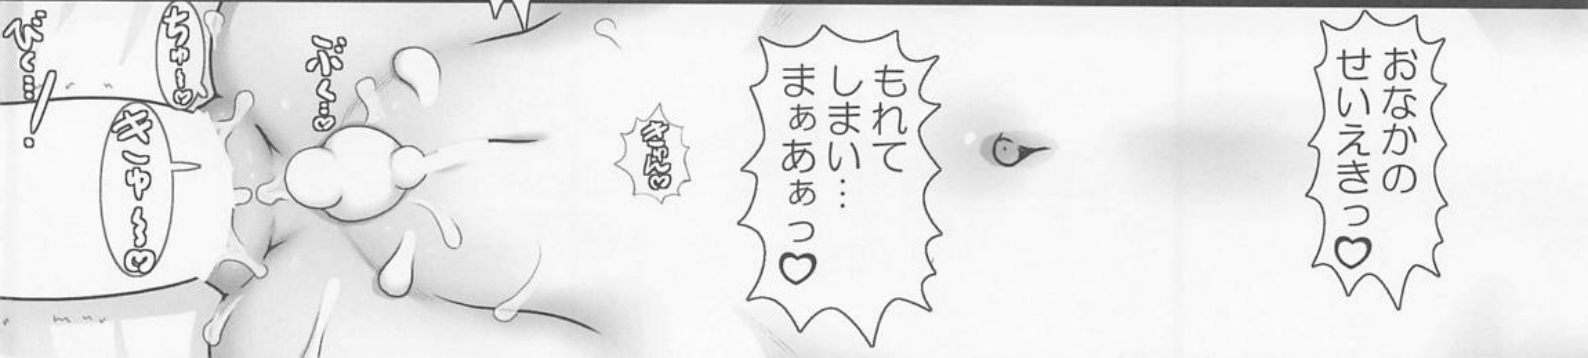 おなかの
せいえきっ♡
もれて
しまい…
まぁあぁっ♡
きゅん♡
ボく…♡
ちゅ~♡
キュゥ~~♡
びく…!